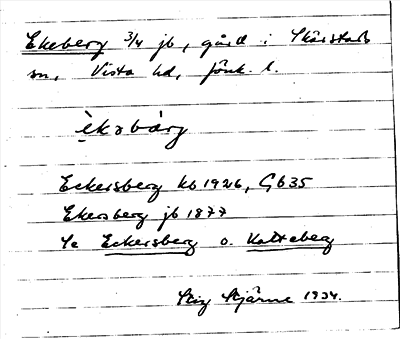 Ekeberg 3/4 jb, gård i Skärstads
sn, Vista hd, Jönk. l.
èkəbàrg
Eckersberg kb 1926, Gb 35
Ekersberg jb 1877
Se Eckersberg o. Katteberg
Stig Stjärne 1934.